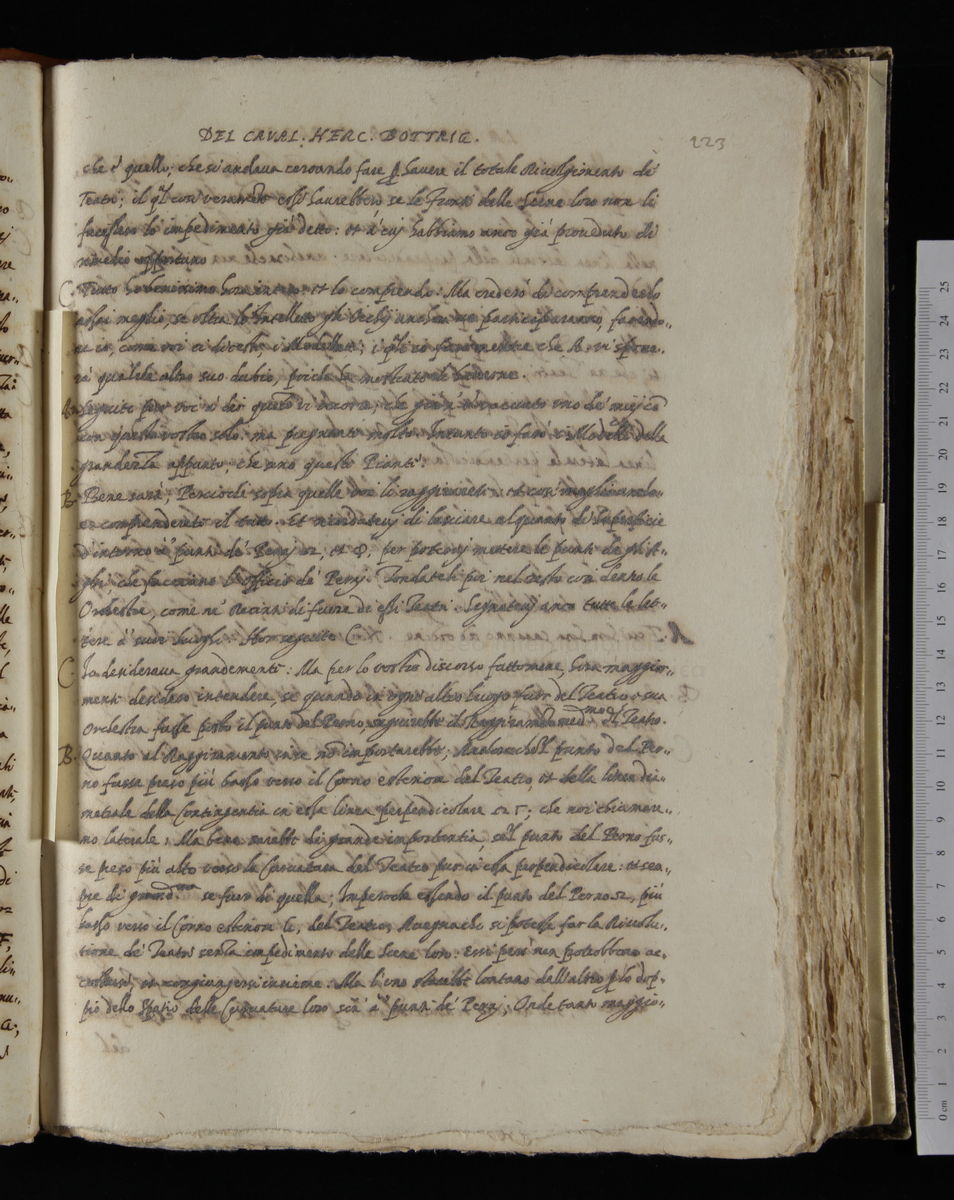 DEL CAVAL. HERC. BOTTRIG.
223
che è quello, che si andava cercando fare ꝑ havere il totale Rivolgimento de
Teatri; il qͣl con veramente essi haurebbero se le Fronti delle Scene loro non li
facessero lo impedimento già detto: et à cui habbiamo anco già proueduto di
rimedio opportuno
C. Tutto ho benissimo hora inteso: et lo comprendo: Ma crederò di comprenderlo
assai meglio, se oltra lo Intelletto gli occhi ancora me participaranno, facendo-
si, come voi ci diceste, i Modelletti;
rà qualche altro suo dubio,
A. Seguite pur voi
con questo vostro solo. ma pregnante molto. Intanto io farò i Modelli della
grandezza appunto, che sono queste Piante.
B. Bene sarà; Percioche sopra quelle voi li raggirarete: et così meglio anco-
ra comprenderete il tutto. Et ricordatevi di lasciare alquanto di superficie
d'intorno à punti de' Perni et per potervi mettere le punte de gli A-
ghi, che facciano l'officio de' Perni. Tondateli poi nel resto così dentro le
Orchestre, come ne' Recinti di fuore di essi Teatri. Segnatevi anco tutte le let-
tere à suoi luoghi. Hor seguite C.
C. Io desiderava grandemente: Ma per lo vostro discorso fattomene, hora maggior-
mente desidero intendere, se quando in ogni altro luogo fuor del Teatro o sua
Orchestra fusse posto il punto del Perno, seguirebbe il Raggiramento medmo. del Teatro.
B. Quanto al Raggiramento in se nō importarebbe, Ancorche'l punto del Per-
no fusse preso più basso verso il Corno esteriore del Teatro, et della linea dia-
metrale della Contingentia in essa linea perpendicolare che noi chiamere-
mo laterale: Ma bene sarebbe di grande importantia, se'l punto del Perno fus-
se preso più alto verso la Curvatura del Teatro pur in essa perpendicolare: et sem-
pre di grandma. se fuor di quella; Imperoche essendo il punto del Perno più
basso verso il Corno esteriore del Teatro, Ancorche si potesse far la Rivolu-
tione de' Teatri senza impedimento delle Scene loro: Essi però non potrebbero ac-
costarsi, et congiungersi insieme. Ma l'uno starebbe lontano dall'altro ꝑ lo dop-
pio dello spatio delle Curvature loro sin à punti de' Perni, Onde tanto maggio-
del